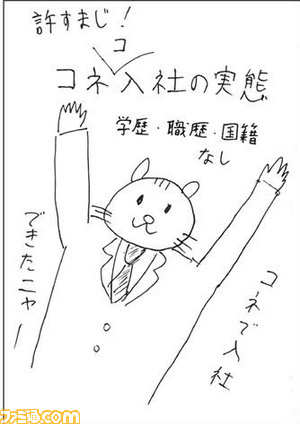 許すまじ！
コネコ入社の実態
学歴・職歴・国籍
なし
コネで入社
できたニャー
ファミ通.com